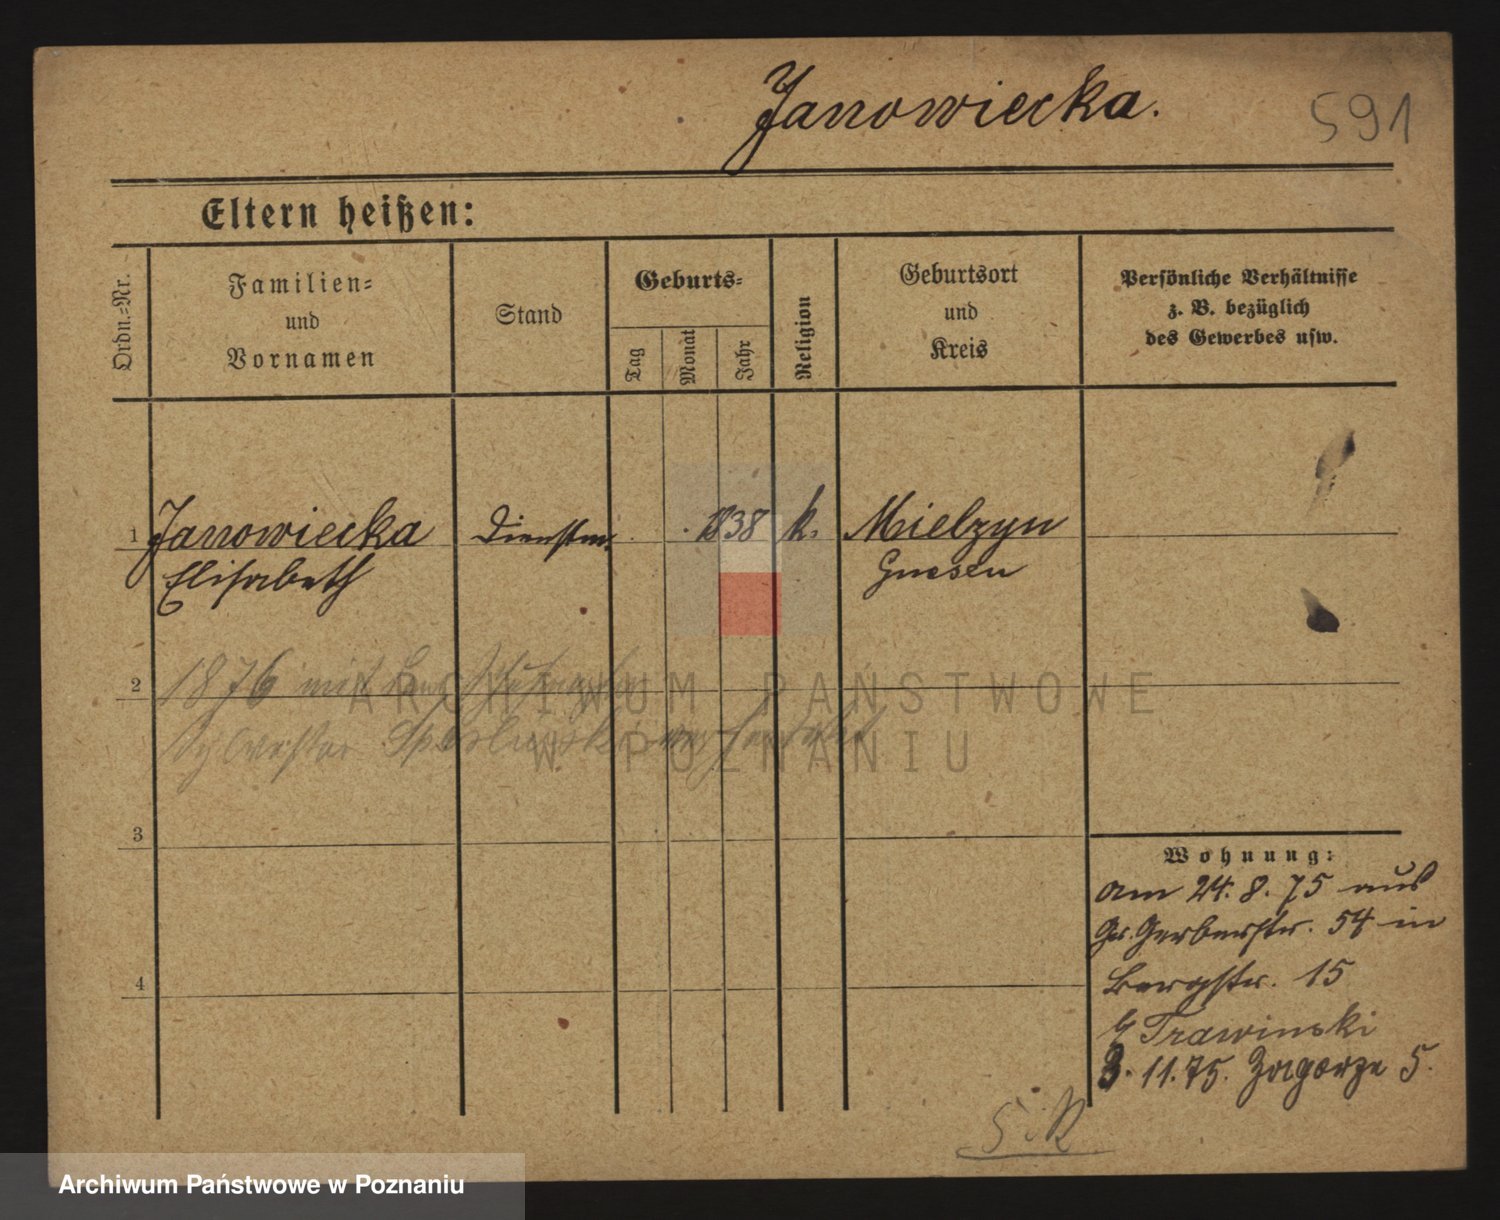 Janowiecka.
591
Eltern heißen:
Ordn.-Nr.
Familien-
und
Vornamen
Stand
Geburts-
Tag
Monat
Jahr
Religion
Geburtsort
und
Kreis
Persönliche Verhältnisse
z. B. bezüglich
des Gewerbes usw.
1 Janowiecka Dienstm. 1838 k. Mielzyn
Elisabeth Gnesen
2 1876 mit dem
Sylvester
ARCHIWUM PAŃSTWOWE
W POZNANIU
3
4
Wohnung:
am 24. 8. 75 aus
Gr. Gerberstr. 54 in
Bergstr. 15
b Trawinski
3. 11. 75. Zagorze 5.
S. R
Archiwum Państwowe w Poznaniu